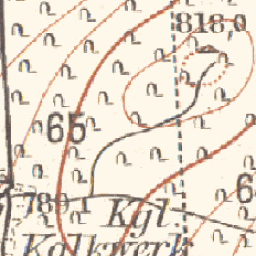 818,0
65
789,1
Kgl.
Kalkwerk